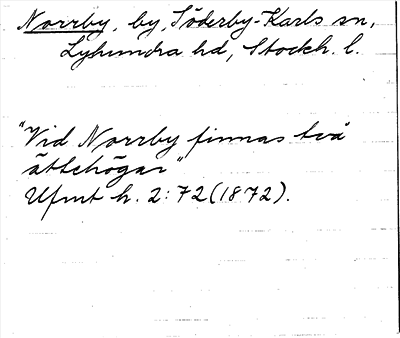 Norrby, by, Söderby-Karls sn,
Lyhundra hd, Stockh. l.
"Vid Norrby finnas två
ättehögar"
Ufmt h. 2:72 (1872).